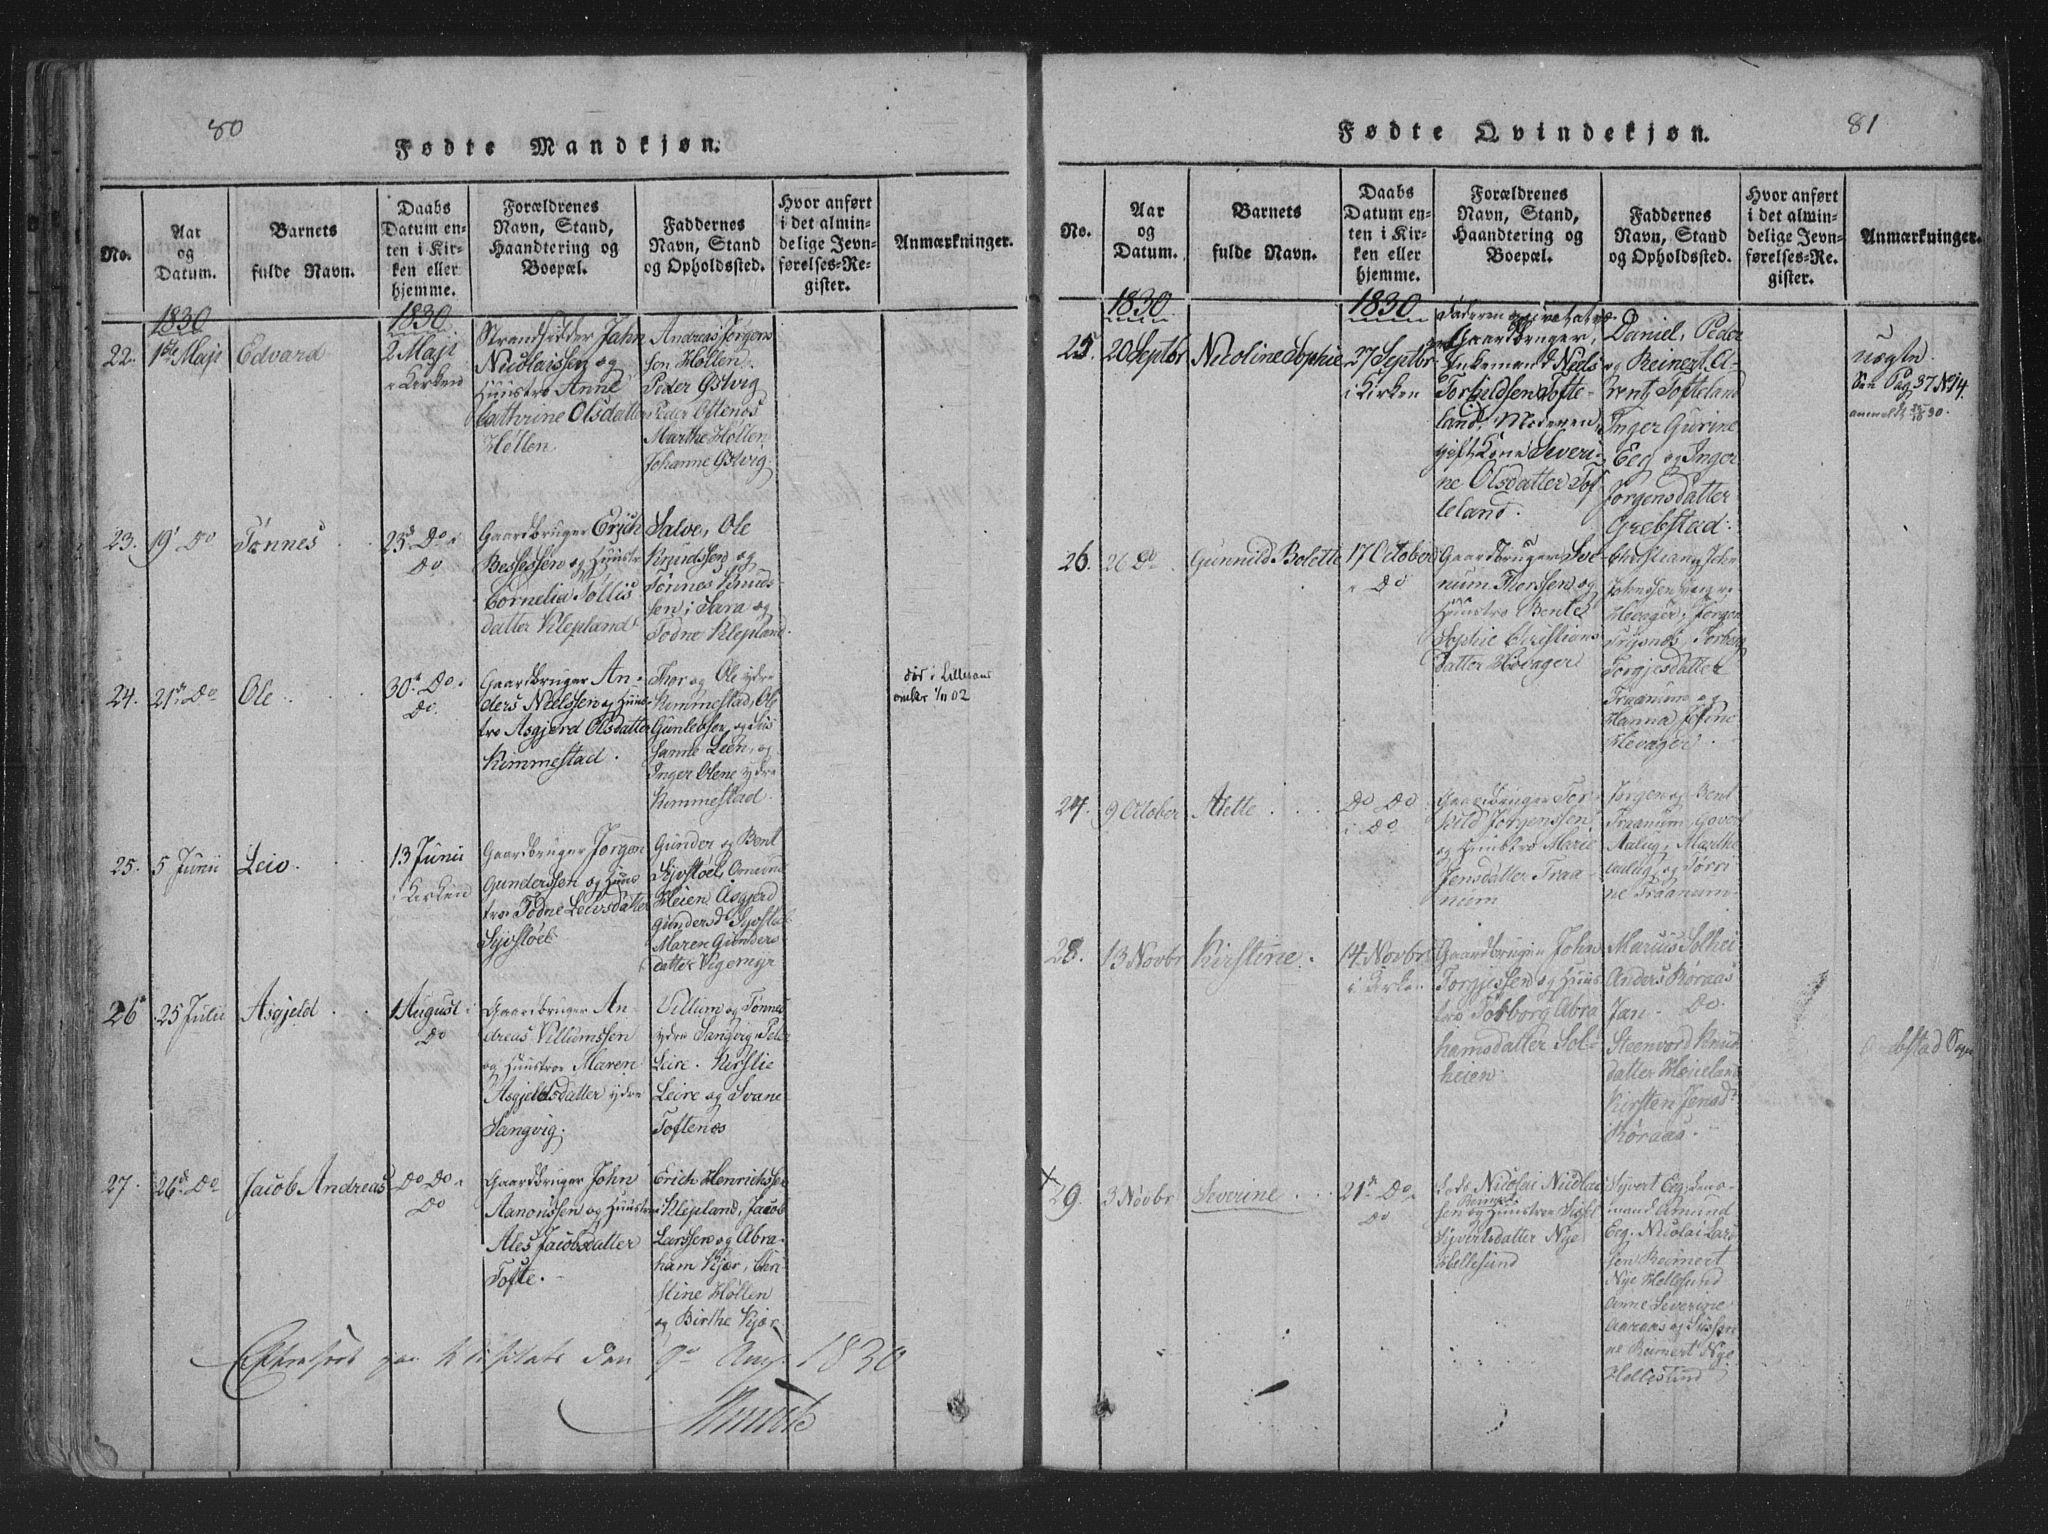 80
Fødte Mandkjøn.
No.
Aar
og
Datum.
Barnets
fulde Navn.
Daabs
Datum en-
ten i Kir-
ken eller
hjemme.
Forældrenes
Navn, Stand,
Haandtering og
Boepæl.
Faddernes
Navn, Stand
og Opholdssted.
Hvor anført
i det almin-
delige Jevn-
førelses-Re-
gister.
Anmærkninger.
1830
1830
22.
1ste Maji
Edvard
2 Maji
i Kirken
Strandsidder Jahn
Nicolaissen og
Huustro Anne
Cathrine Olsdatter
Høllen
Andreas Jørgens
sen Høllen
Peder Østvig
Peder Ottenes
Marthe Høllen
Johanne Østvig
23.
19 Do
Tønnes
23d Do i
Do
Gaardbruger Erich
Bessessen og Huustro
Cornelia Tøllis
datter Klepland
Salve, Ole
Knudssen og
Tønnes Knuds-
sen, Sara og
Todne Klepland
24.
21de Do
Ole
30te Do i
Do
Gaardbruger An-
ders Nielssen og Huus-
tro Asgjerd Olsdatter
Kimmestad.
Thor og Ole ydre
Kimmestad, Ole
Gunlefsen og Sus
sanne Leen, og
Inger Olene ydre
Kimmestad
død i Lillesand
1/11 02
25.
5 Junii
Leiv.
13 Junii
i Kirken
Gaardbruger Jørgen
Gunderssen og Huus
tro Todne Leivsdatter
Syvstøel.
Gunder og Bent
Syvstøel, Omund
Heien Asgjerd
Gundersd Syvstøel
Maren Gunders
datter Vigemyr
26
25 Julii
Asgjeld
1 August i
Do
Gaardbruger An-
dreas Villumssen
og Huustroe Maren
Asgjeldsdatter ydre
Sangvig.
Villum og Tønnes
ydre Sangvig, Peder
Leire. Kirstie
Leire og Svane
Toftenes
27.
26de Do
Jacob Andreas
Do Do i
Do
Gaardbruger John
Aanonssen og Huustroe
Ales Jacobsdatter
Tofte.
Erich Henrichsen
Klepland, Jacob
Larssen og Abra-
ham Kjær, Chri-
stine Høllen
og Birthe Kjær
den 9de Aug. 1830
81
Fødte Qvindekjøn.
No.
Aar
og
Datum.
Barnets
fulde Navn.
Daabs
Datum en-
ten i Kir-
ken eller
hjemme.
Forældrenes
Navn, Stand,
Haandtering og
Boepæl.
Faddernes
Navn, Stand
og Opholdssted.
Hvor anført
i det almin-
delige Jevn-
førelses-Re-
gister.
Anmærkninger.
1830
1830
25.
20 Septbr
Nicoline Sophie
27 Septbr
i Kirken
Gaardbruger,
Enkemand Niels
Torkildsen Tofte-
land, Moderen
gift Kone Severi-
ne Olsdatter Tof
teland.
Daniel, Peder
og Reinert A-
rentz Tofteland
Inger Gurine
Eeg og Inger
Jørgensdatter
Grebstad.
uægte.
See Pag 37 No 14.
anmeldt
26.
26 Do
Gunnild Bolette
17 October
i Do
Gaardbruger Sve-
num Thorssen og
Huustro Bente
Sophie Christians
datter Høvager
Christian, John
Høvager, Jørgen
Trysnes, Torborg
Torgjesdatter
Traanum og
Hanna Jøsine
Høvager.
27.
9 October
Alette
Do Do
i Do
Gaardbruger Tor-
kild Jørgenssen
og Huustro Marie
Jensdatter Traa
num
Jørgen og Bent
Traanum, Govert
Aalug, Marthe
Aalug og Tørri
ne Traanum.
28.
13 Novbr
Kirstine.
14 Novbr
i Kirken
Gaardbrugen John
Torgjessen og Huus
tro Torborg Abra
hamsdatter Sol-
heien
Marius Solhei
Anders Røraas
Jan. Do
Steenvord Knud
datter Høieland
Kirsten Jensd
Røraas.
Sogn
29.
3 Novbr
Severine
21de Do i
Do
Lods Nicolai Nicolai
sen Reimert og Huustroe Sissel
Syvertsdatter Nye
Hellesund
Syvert Eeg,
mand Amund
Eeg, Nicolai Lars
sen Reimert
Nye Hellesund
Anne Severine
Aaraas og Sussen
ne Reimert Nye
Hellesund